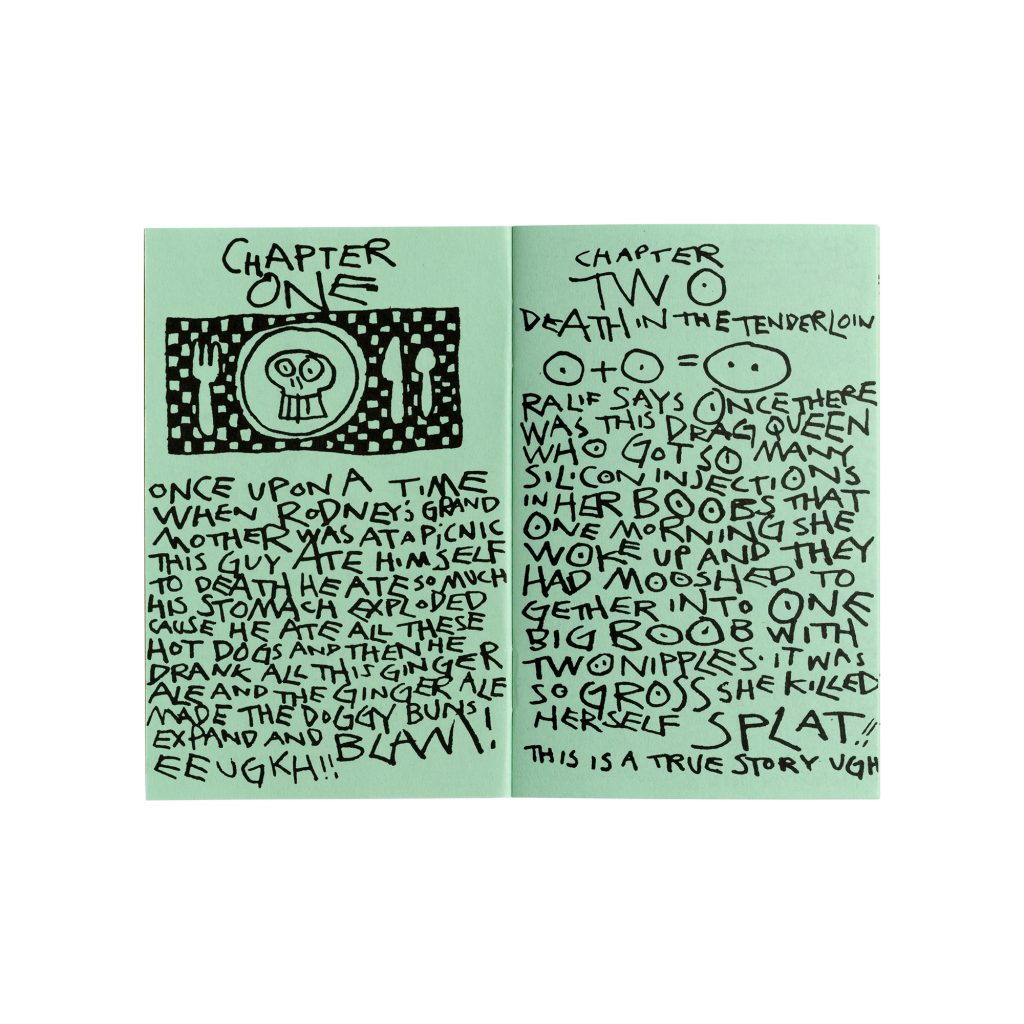 CHAPTER
ONE
ONCE UPON A TIME
WHEN RODNEY'S GRAND
MOTHER WAS AT A PiCNIC
THIS GUY ATE HIMSELF
TO DEATH HE ATE SO MUCH
HIS STOMACH EXPLODED
CAUSE HE ATE ALL THESE
HOT DOGS AND THEN HE
DRANK ALL THIS GINGER
ALE AND THE GINGER ALE
MADE THE DOGGY BUNS
EXPAND AND BLAM!
EEUGKH!!
CHAPTER
TWO
DEATH IN THE TENDERLOIN
+ =
RALIF SAYS ONCE THERE
WAS THIS DRAG QUEEN
WHO GOT SO MANY
SILICON INJECTIONS
IN HER BOOBS THAT
ONE MORNING SHE
WOKE UP AND THEY
HAD MOOSHED TO
GETHER INTO ONE
BIG BOOB WITH
TWO NIPPLES. IT WAS
SO GROSS SHE KILLED
HERSELF SPLAT!!
THIS IS A TRUE STORY UGH